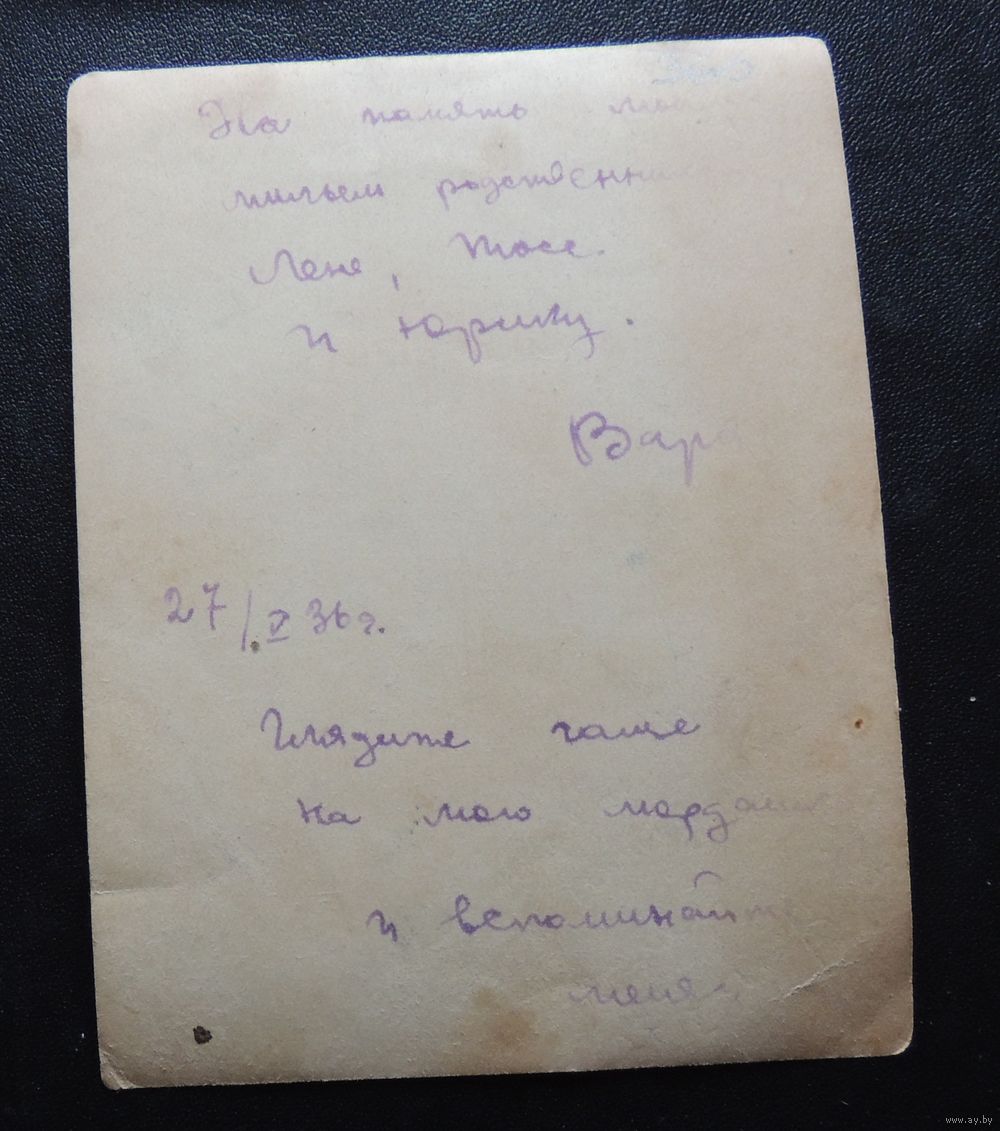 На память
милым родственникам
Лене, Тосе.
и Юрику.
Варя
27/V 36 г.
Глядите чаще
на мою мордашку
и вспоминайте
меня.
www.ay.by